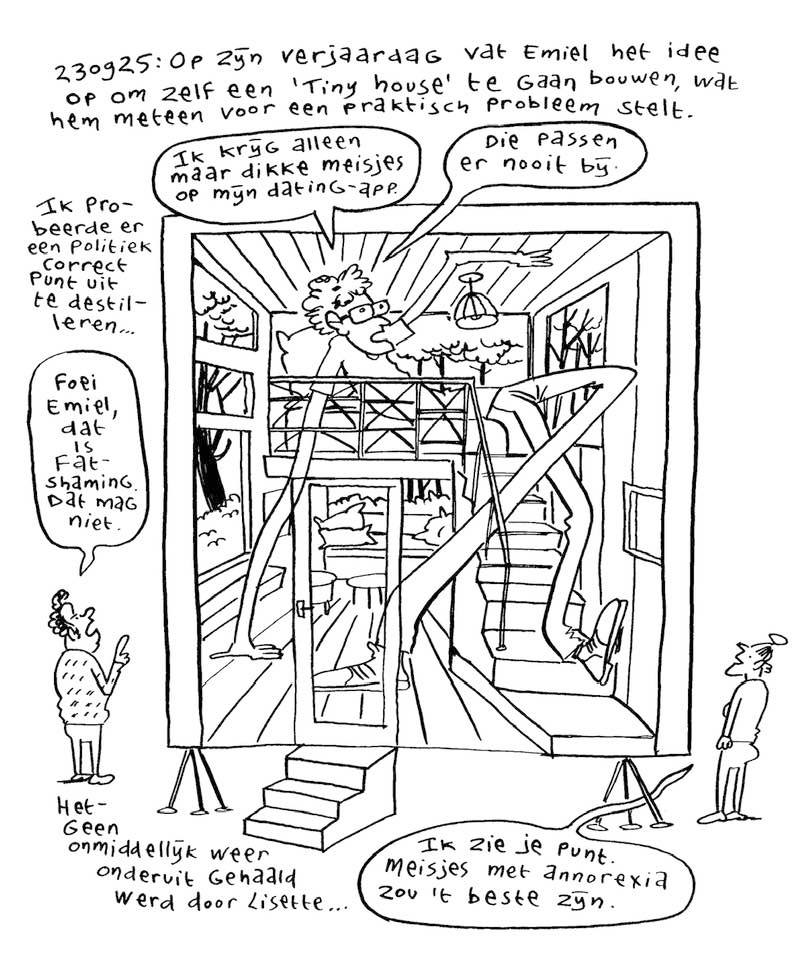 230925: Op zijn verjaardag vat Emiel het idee
op om zelf een 'Tiny house' te gaan bouwen, wat
hem meteen voor een praktisch probleem stelt.
Ik krijg alleen
maar dikke meisjes
op mijn dating-app.
Die passen
er nooit bij.
Ik pro-
beerde er
een politiek
correct
punt uit
te destil-
leren...
Foei
Emiel,
dat
is
Fat-
shaming.
Dat mag
niet.
Het-
geen
onmiddellijk weer
onderuit gehaald
werd door Lisette...
Ik zie je punt.
Meisjes met annorexia
zou 't beste zijn.